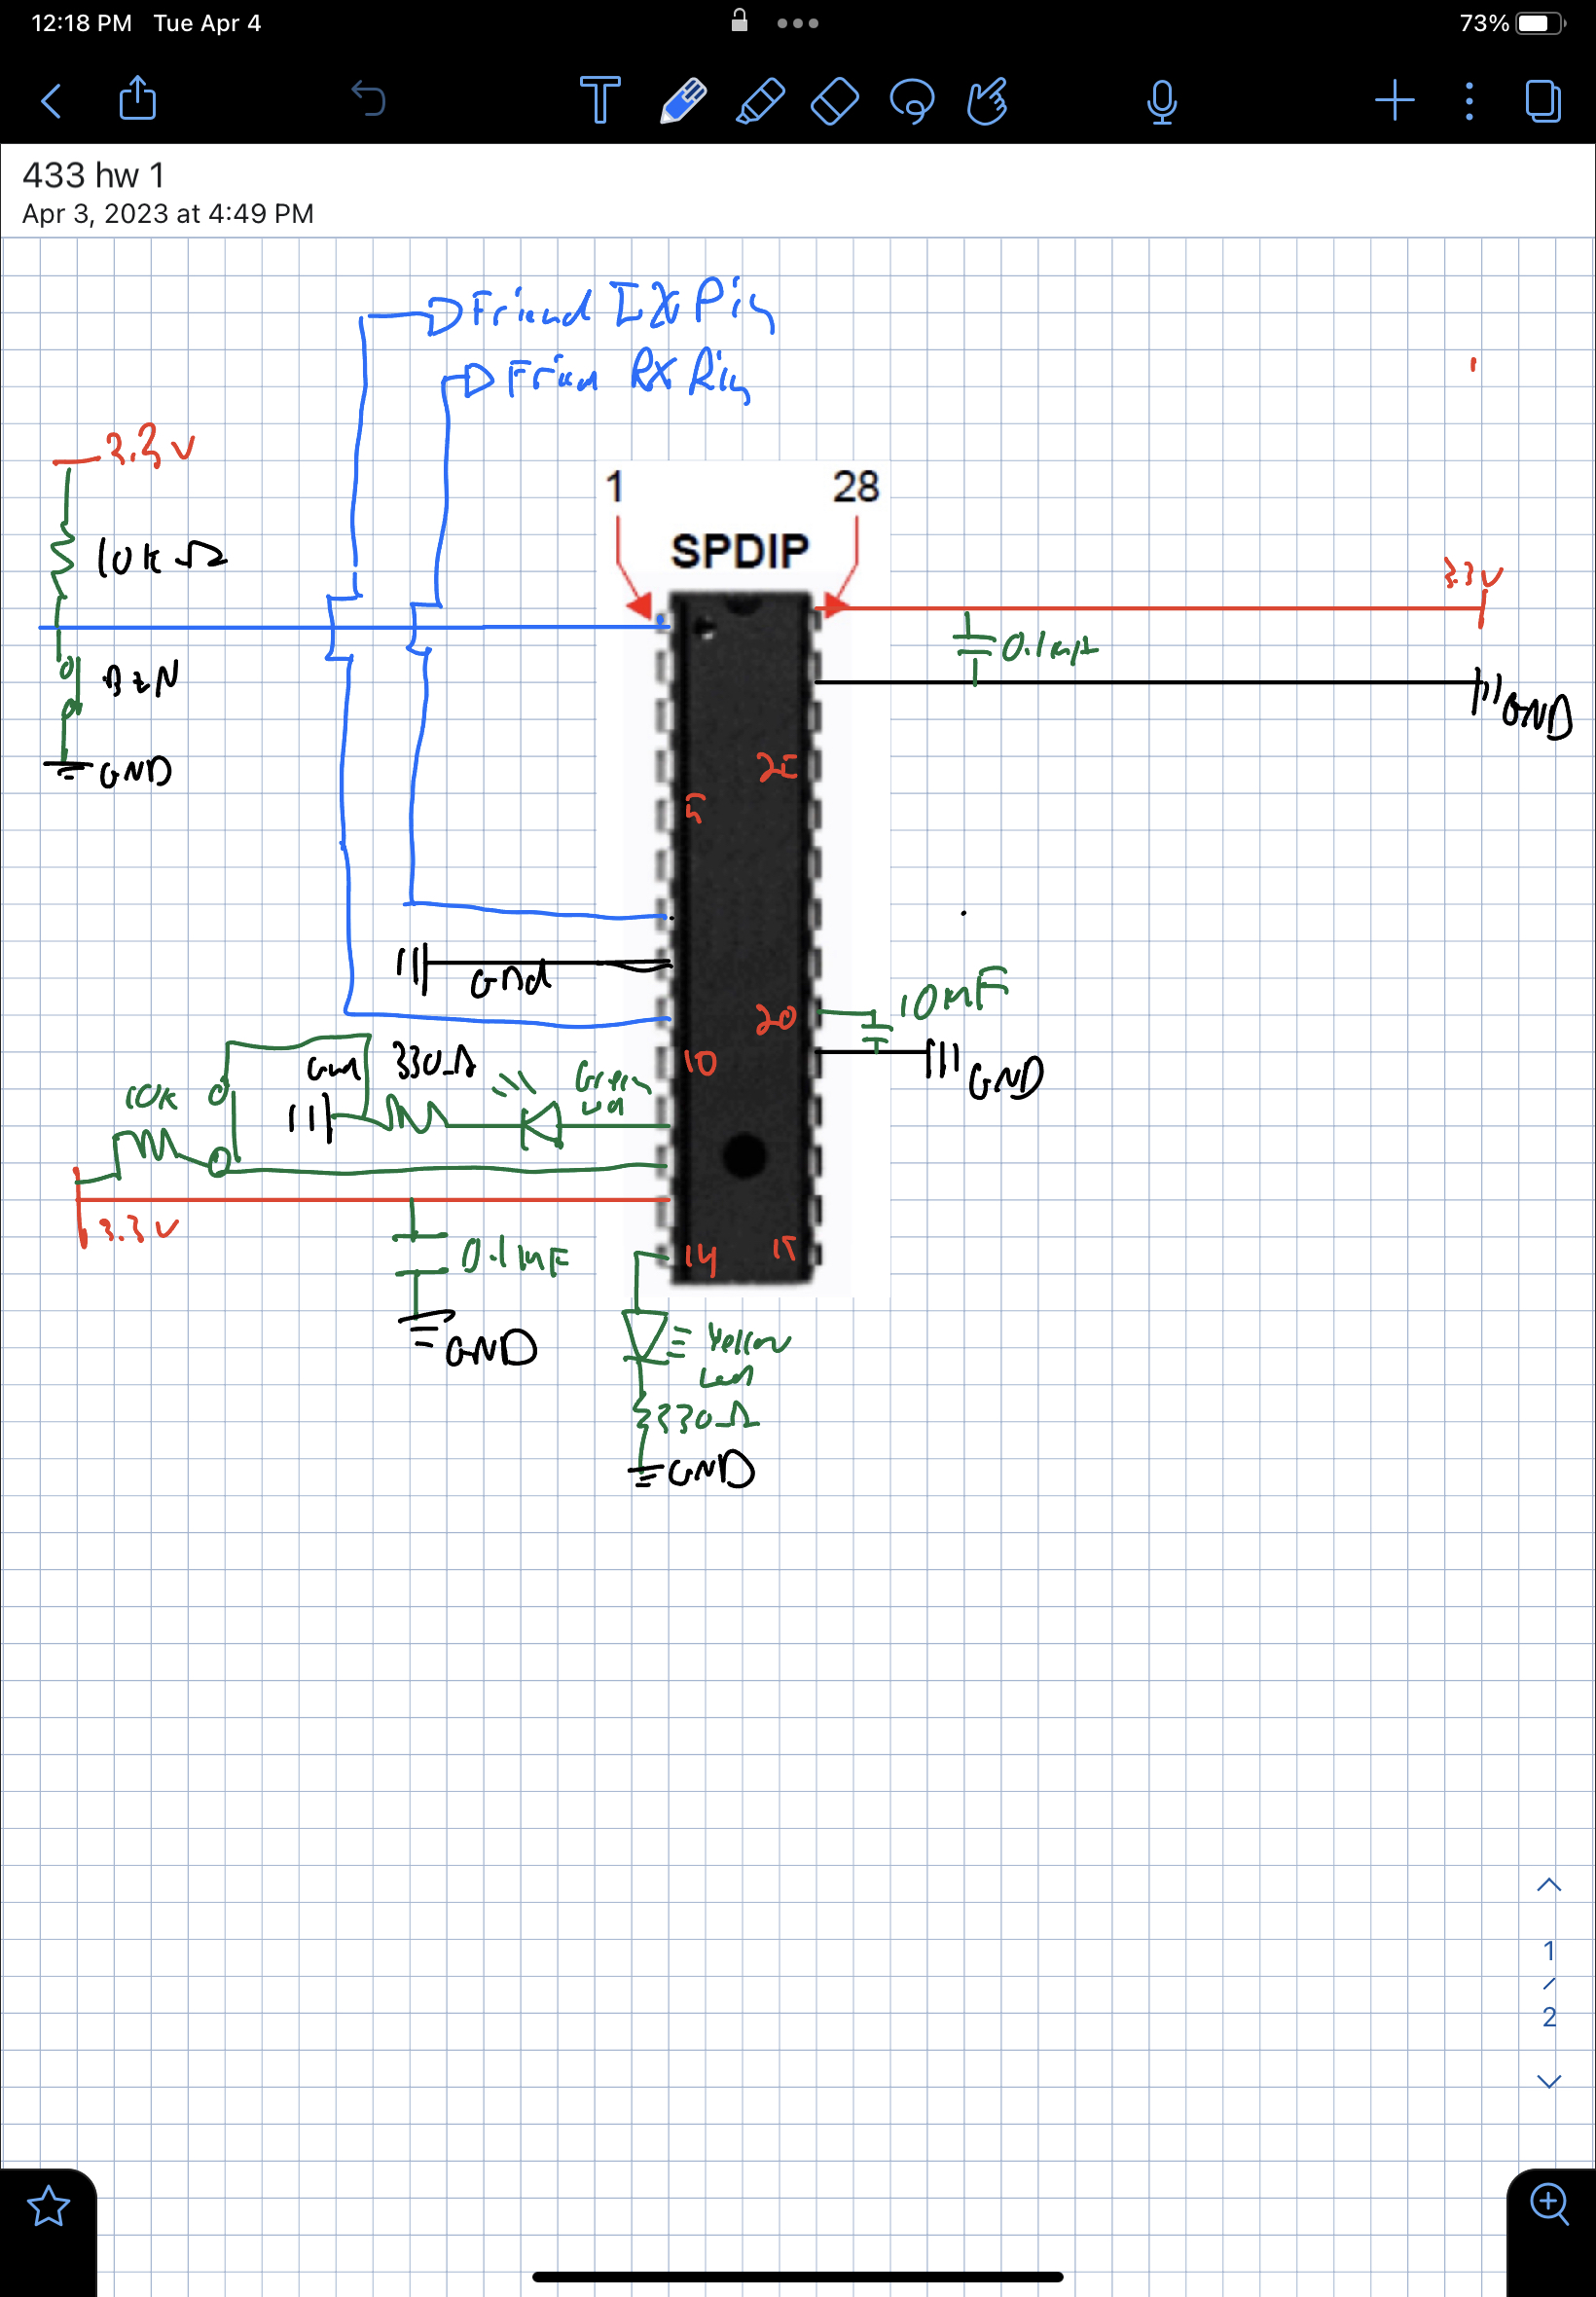 12:18 PM Tue Apr 4
73%
433 hw 1
Apr 3, 2023 at 4:49 PM
Friend TX Pin
Frien RX Pin
3.3 V
10k Ω
1
28
SPDIP
3.3V
0.1
BtN
GND
GND
25
5
Gnd
20
10mF
GND
10
Gnd
330Ω
Green
10k
3.3 V
0.1mF
GND
14
15
Yellow
Led
330Ω
GND
1
/
2